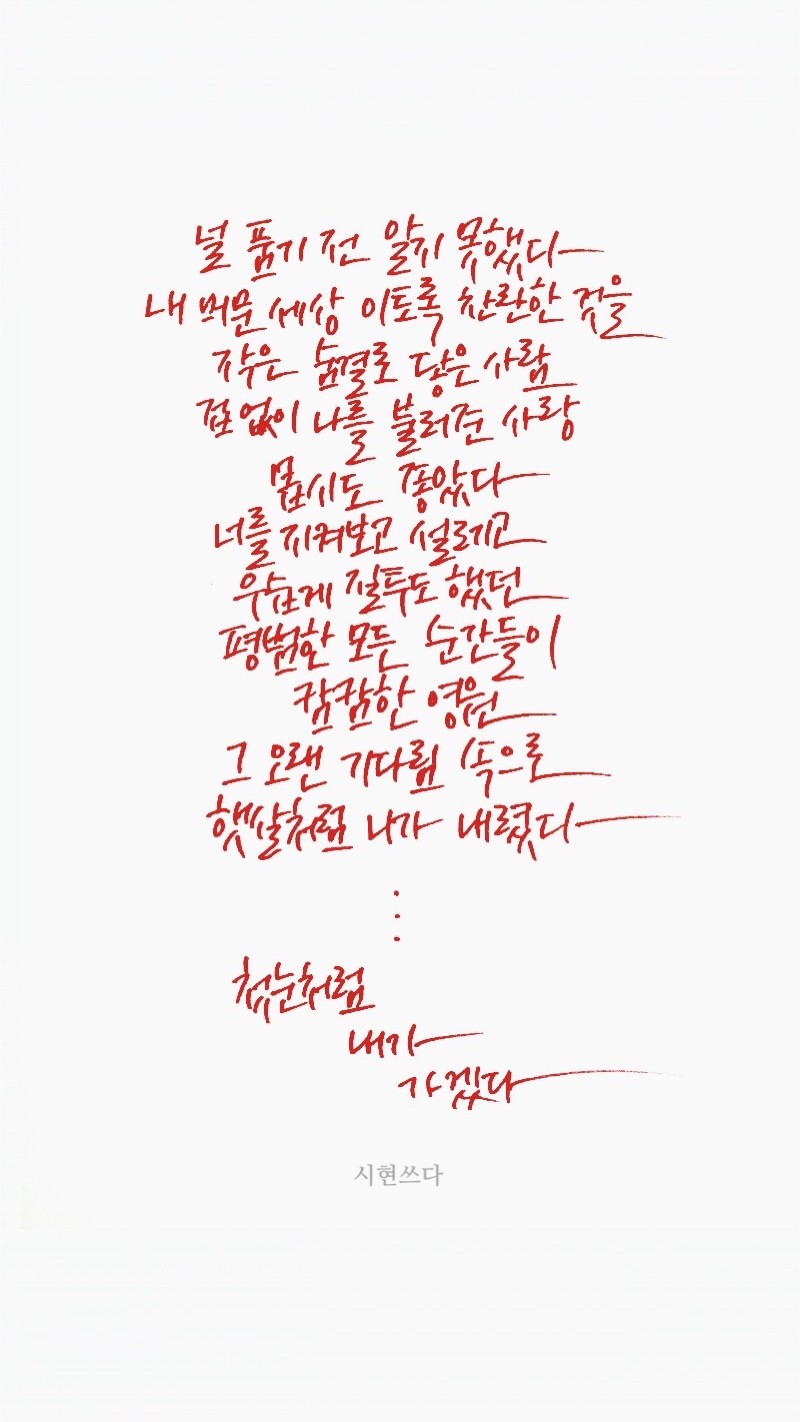 널 품기 전 알지 못했다
내 머문 세상 이토록 찬란한 것을
작은 숨결로 닿은 사람
겁 없이 나를 불러준 사랑
몹시도 좋았다
너를 지켜보고 설레고
우습게 질투도 했던
평범한 모든 순간들이
캄캄한 영원
그 오랜 기다림 속으로
햇살처럼 니가 내렸다
⋮
첫눈처럼
내가
가겠다
시현쓰다